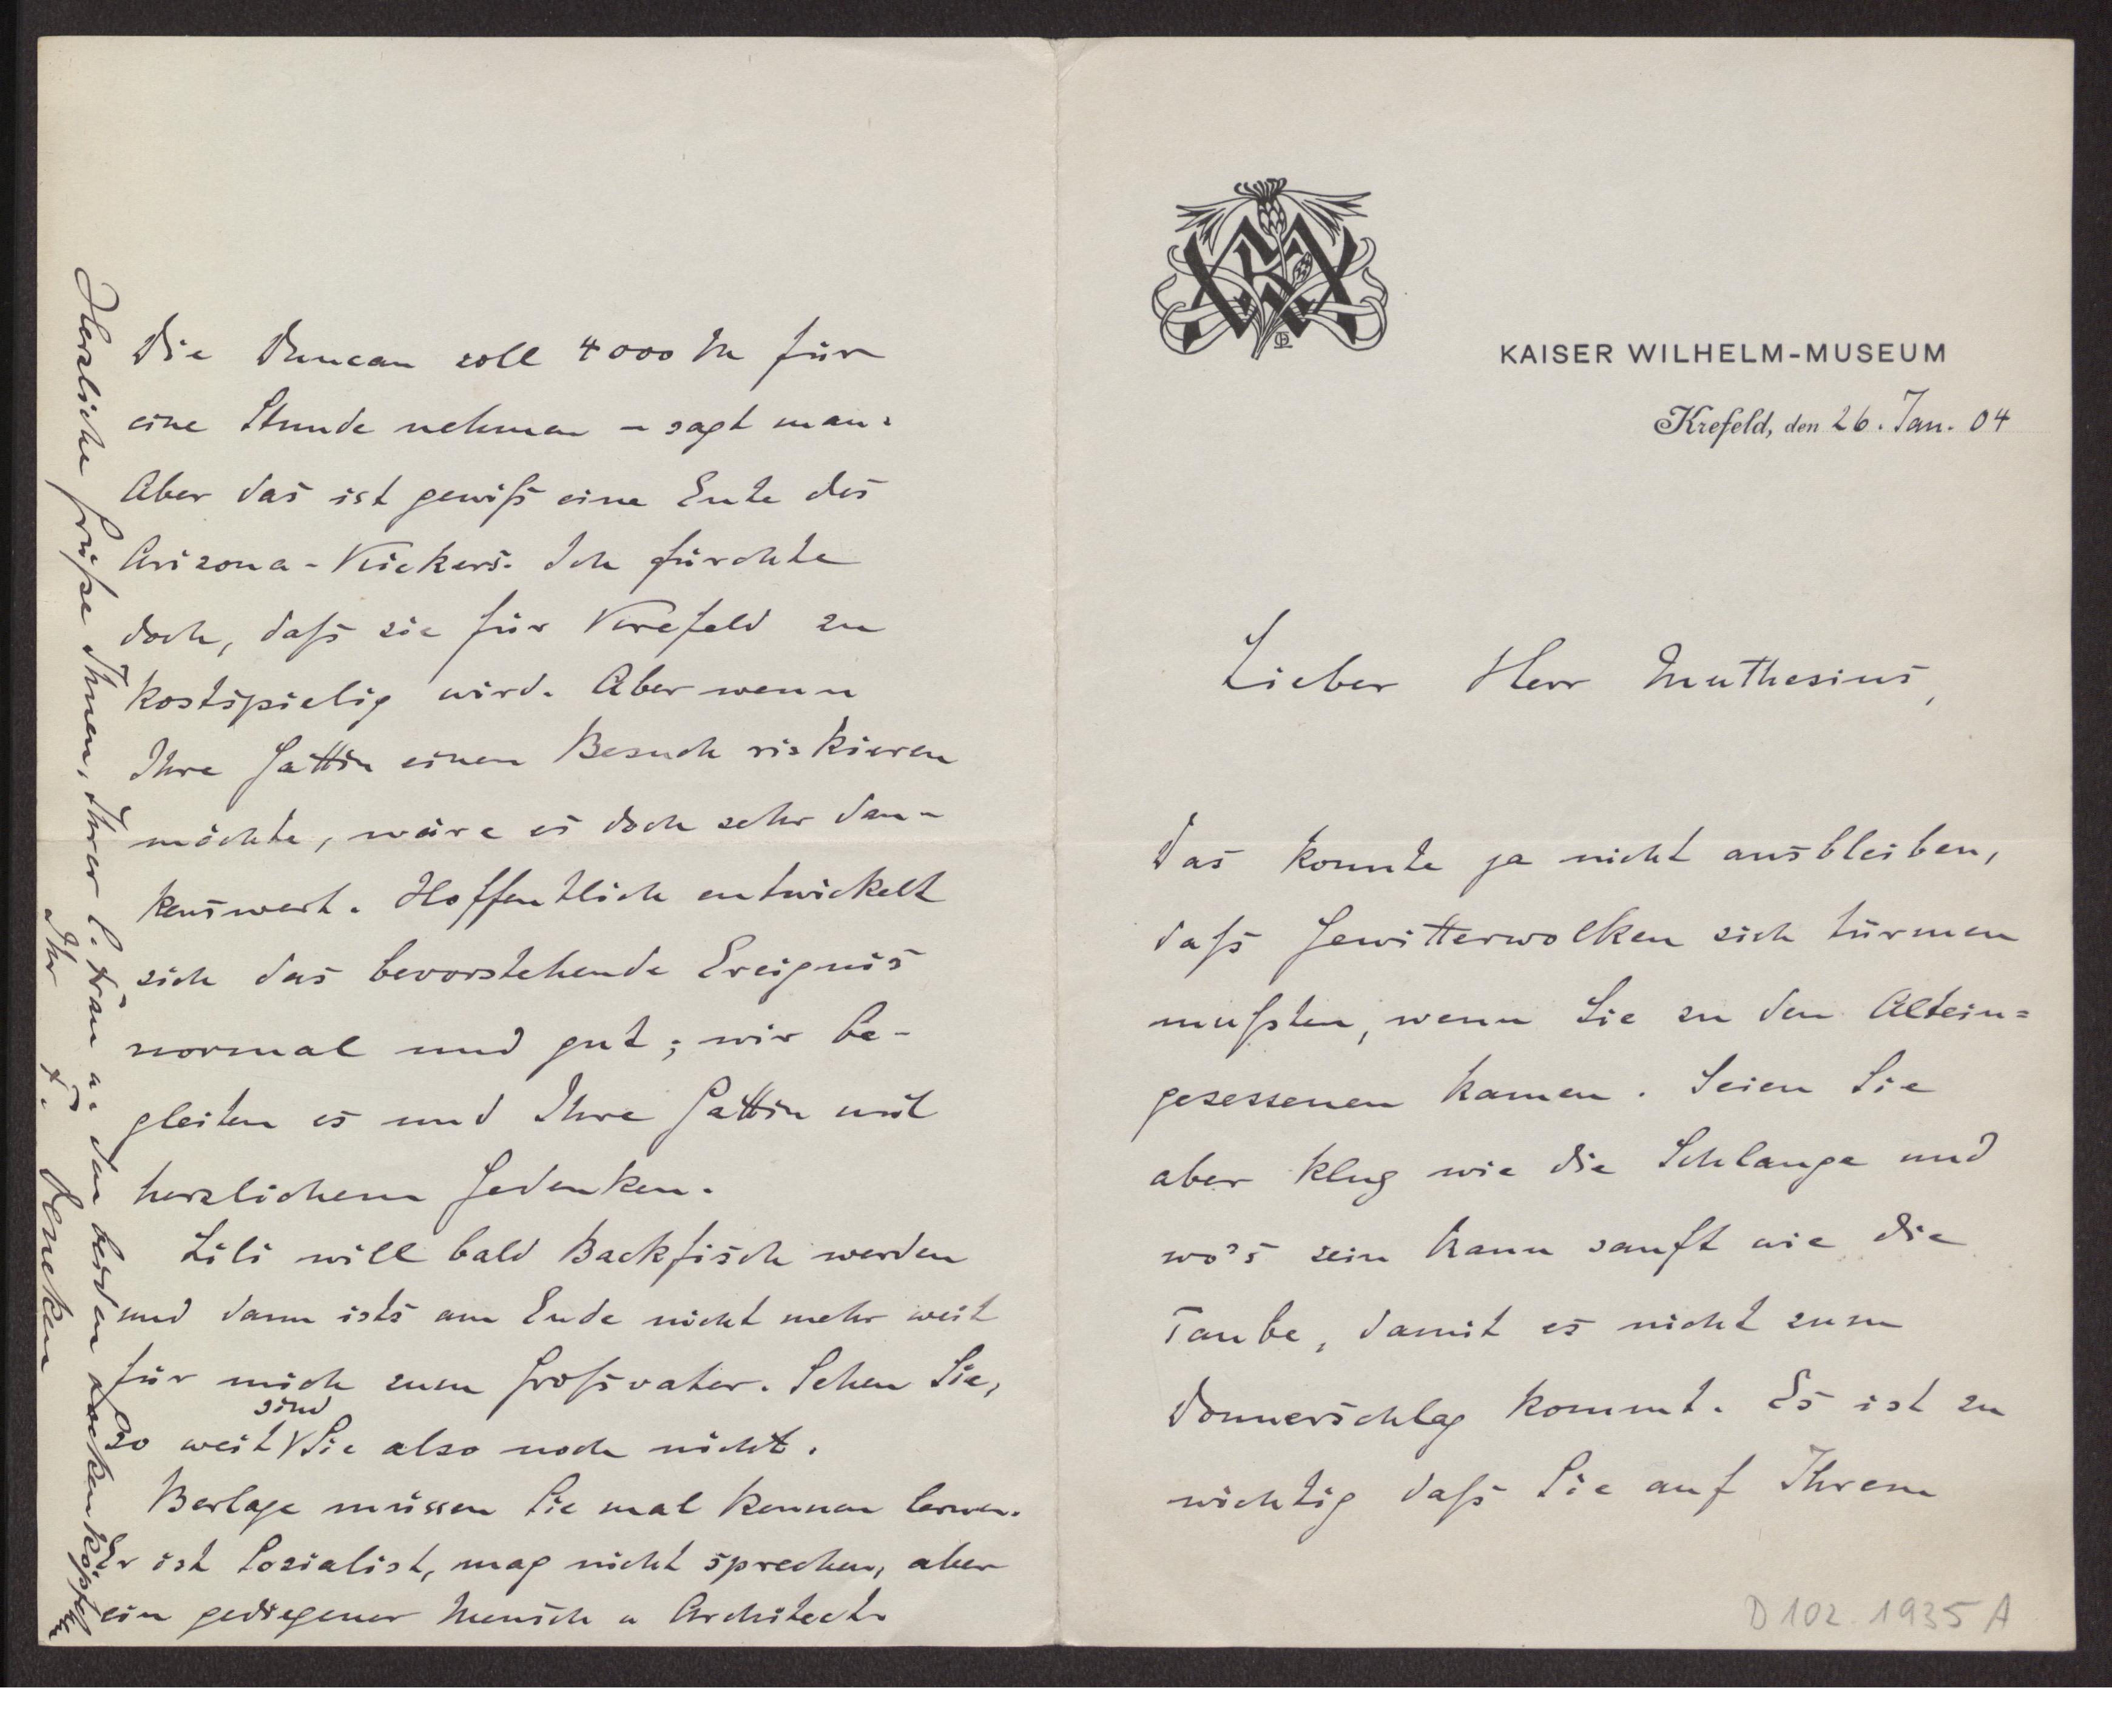 KAISER WILHELM-MUSEUM
Krefeld, den 26. Jan. 04
Lieber Herr Muthesius,
Das konnte ja nicht ausbleiben,
daß Gewitterwolken sich türmen
mußten, wenn Sie zu den Altein=
gesessenen kamen. Seien Sie
aber klug wie die Schlange und
wo's sein kann sanft wie die
Taube, damit es nicht zum
Donnerschlag kommt. Es ist zu
wichtig daß Sie auf Ihrem
D 102.1935 A
Die Duncan soll 4000 M für
eine Stunde nehmen - sagt man.
Aber das ist gewiß eine Ente des
Arizona-Kickers. Ich fürchte
doch, daß sie für Krefeld zu
kostspielig wird. Aber wenn
Ihre Gattin einen Besuch riskieren
möchte, wäre es doch sehr dan-
kenswert. Hoffentlich entwickelt
sich das bevorstehende Ereignis
normal und gut; wir be-
gleiten es und Ihre Gattin mit
herzlichem Gedenken.
Lili will bald Backfisch werden
und dann ists am Ende nicht mehr weit
für mich zum Großvater. Sehen Sie,
so weit sind Sie also noch nicht.
Berlage müssen Sie mal kennen lernen.
Er ist Sozialist, mag nicht sprechen, aber
ein gediegener Mensch u Architect.
Herzliche Grüße Ihnen, Ihrer l. Frau u. den beiden Lockenköpfchen
Ihr F. Deneken